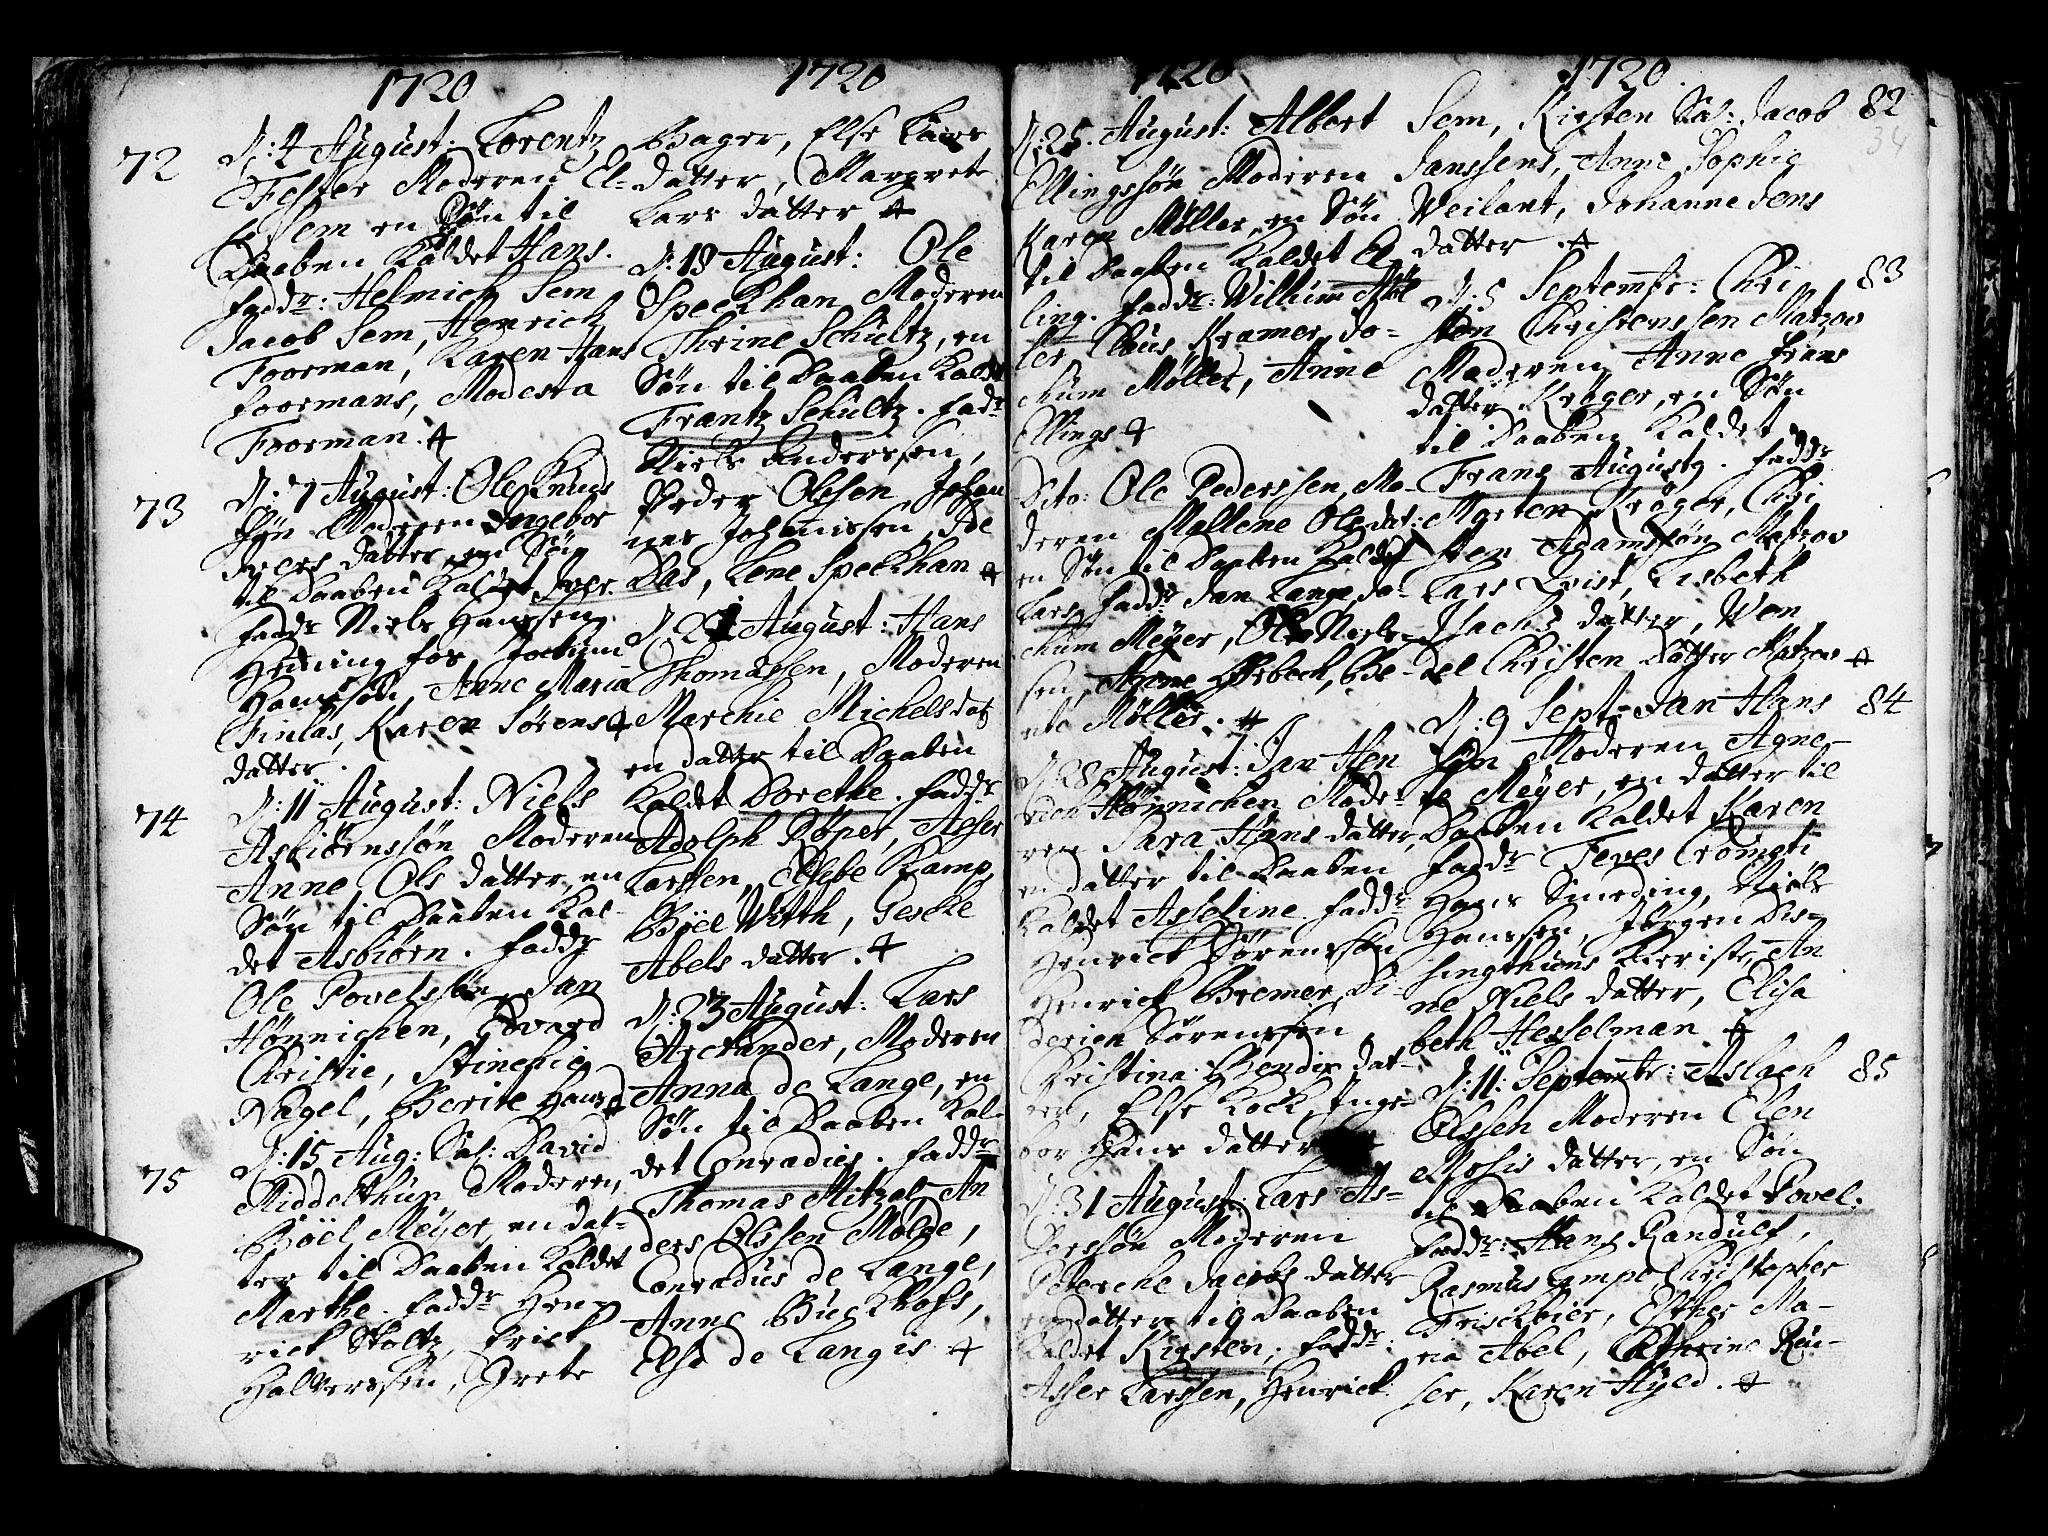 1720
72
D: 4 August: Lorentz
Fester Moderen El-
Sem en Søn til
Daaben kaldet Hans.
fadd:r: Helmich Sem
Jacob Sem, Henrich
Foorman, Karen Hans
foormans, Modesta
Foorman.
73
D: 7 August: Ole Knud
Søn Moderen Ingebor
Ivers datter, en Søn
til Daaben kaldet Iver.
fadd:r Niels Hanssen
Henning fos, Jochum
Hanssøn, Anne Maria
Finlas, Karen Sørens
datter.
74
D: 11 August: Niels
Asbiørnssøn Moderen
Anne Ols datter, en
Søn til Daaben kal-
det Asbiørn. fadd:r
Ole Povelssøn, Jan
Hønnichen, Edvard
Christie, Stinchie
Nagel, Berite Hans
75
D: 15 Aug: Sal: David
Middelthun Moderen,
Bøel Meyer, en dat-
ter til Daaben kaldet
Marthe. fadd:r Hen-
rick Stoltz, Erick
Halversen, Grete
1720
Hager, Else Lars
datter, Margrete
Lars datter
D: 18 August: Ole
Speckhan Moderen
Thrine Schultz, en
Søn til Daaben kaldet
Frantz Schultz. fadd:r
Niels Anderssen,
Peder Olesen, Johan
nes Johanissen, Ide
Das, Lene Speckhan
D: 21 August: Hans
Thomassen, Moderen
Marchie Michels dat
en datter til Daaben
kaldet Dorethe. fadd:r
Adolph Røper, Asser
Larssen, Kamp,
Bøel Witth, Gescke
Abels datter.
D: 23 August: Lars
Arctander, Moderen
Anna de Lange, en
Søn til Daaben kal-
det Conradies. fadd:r
Thomas Mitzel, An
ders Olssen Molde,
Conradus de Lange,
Anne Buckhofs,
Else de Langis
1720
D: 25. August: Albert
Ellingssøn Moderen
Karen Møller, en Søn
til Daaben kaldet El
ling. fadd:r: Willum Møl
ler, Claus Kramer, Jo-
chum Møller, Anne
Ellings
Dito: Ole Pederssen, Mo-
deren Mallene Ols dat:
en Søn til Daaben kaldet
Lars, fadd:r Jan Lange, Jo-
chum Meyer, Ole Niels-
sen, Anne Ørbech, Be-
nte Møller.
D: 28 August: Jan Hen
rich Hønnichen Mode-
ren Sara Hans datter,
en datter til Daaben
kaldet Asseline. fadd:r
Henrick Sørenssøn
Henrick Bremer, Di-
derich Sørenssen
Christina Bendix dat-
ter, Else Kock, Inge-
bor Hans datter
D: 31 August: Lars As-
serssøn Moderen
Peterche Jacobs datter
en datter til Daaben
kaldet Kirsten, fadd:r:
Asser Larssen, Henrick
1720
82
34
Sem, Kirsten Sal: Jacob
Janssens, Anne Sophie
Weilant, Johanne Jens
datter.
83
D: 5 Septembr: Chri
sten Christenssen Matzov
Moderen Anne frans
datter Krøger, en Søn
til Daaben kaldet
Frans Augusty. fadd:r
Morten Krøger, Chri
sten Adamssøn Matzov
Lars Qvist, Lisbeth
Isachs datter, Wen
del Christen datter Matzov
84
D: 9 Sept: Jan Hans
Søn Moderen Agne-
te Meyer, en datter til
Daaben kaldet Karen
fadd:r Teves
Hans Smeding, Niels
Hanssen, Jørgen Dis-
singthuns Kieriste, An
ne Niels datter, Elisa
beth Hesselman
85
D: 11: Septembr: Aslach
Olssen Moderen Elen
Mosis datter, en Søn
til Daaben kaldet Povel.
fadd:r: Hans Randulf,
Rasmus Christopher
Frisckbier, Esther Ma-
ria Abel, Cathrine Reu-
ser, Karen Hyld.